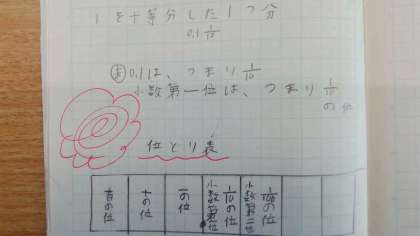 1を十等分した1つ分
0.1 1/10
ま 0.1は、つまり1/10
小数第一位は、つまり1/10
の位
位とり表
百の位 十の位 一の位 小数第一位 1/10の位 小数第二位 1/100の位